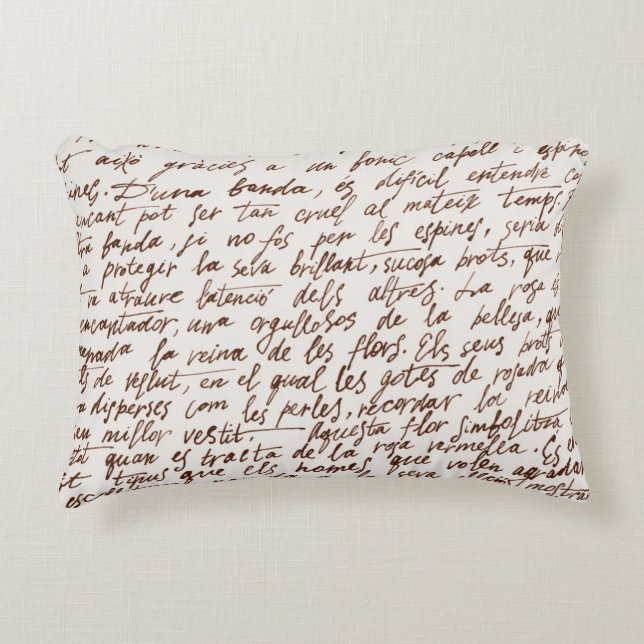 això gràcies a un bonic capell i espin
ines. D'una banda, és difícil entendre co
encant pot ser tan cruel al mateix temps
tra banda, si no fos per les espines, seria di
a protegir la seva brillant, sucosa brots, que
tra atraure l'atenció dels altres. La rosa és
encantador, una orgullosos de la bellesa, qu
menada la reina de les flors. Els seus brots
ts de vellut, en el qual les gotes de rosada q
a disperses com les perles, recordar la reina
eu millor vestit. Aquesta flor simbolitza
tat quan es tracta de la rosa vermella. És e
rt tipus que els homes, que volen agradar
la seva mostrar